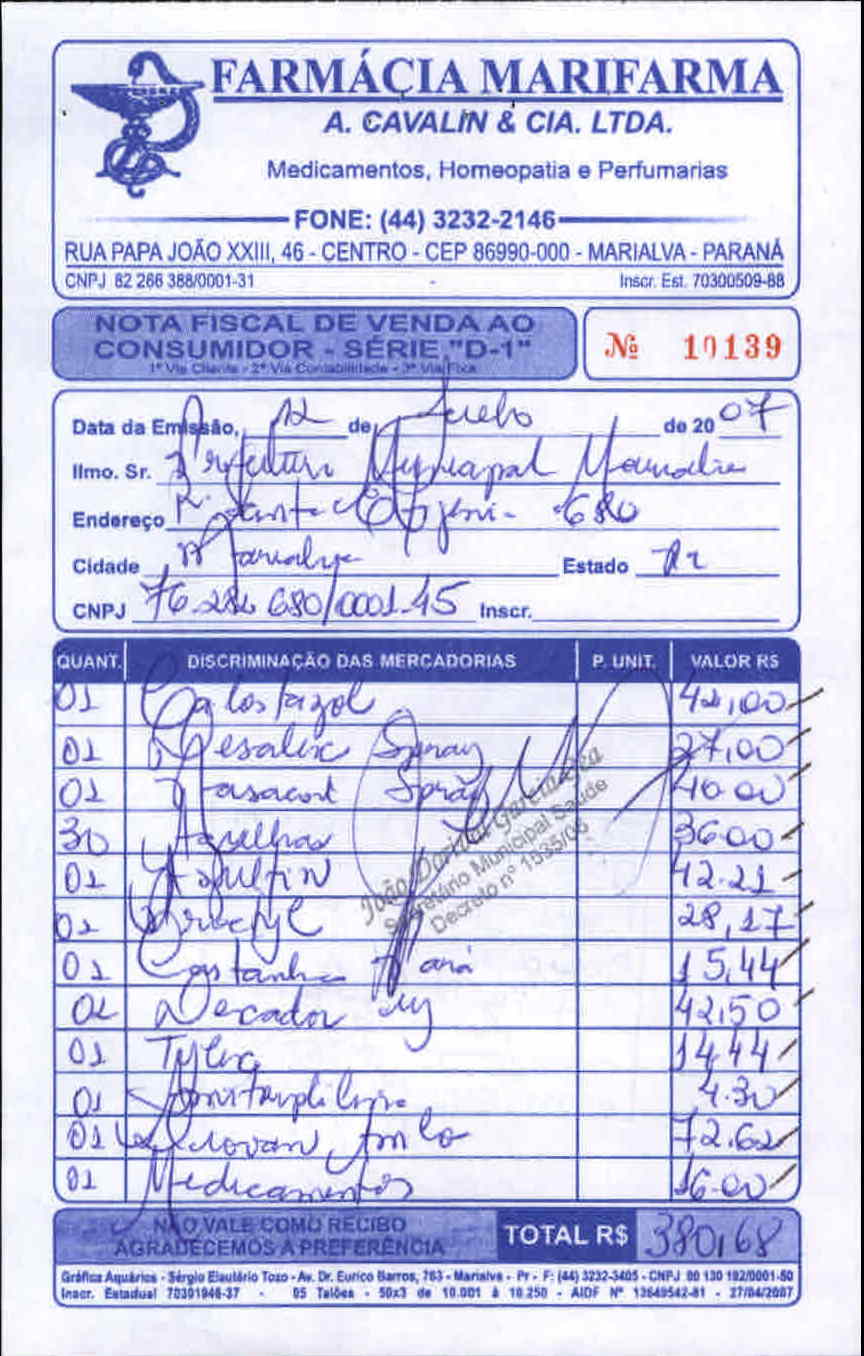 FARMÁCIA MARIFARMA
A. CAVALIN & CIA. LTDA.
Medicamentos, Homeopatia e Perfumarias
FONE: (44) 3232-2146
RUA PAPA JOÃO XXIII, 46 - CENTRO - CEP 86990-000 - MARIALVA - PARANÁ
CNPJ 82 266 388/0001-31 Inscr. Est. 70300509-88
NOTA FISCAL DE VENDA AO
CONSUMIDOR - SÉRIE "D-1"
1ª Via Cliente - 2ª Via Contabilidade - 3ª Via Fixa
Nº 10139
Data da Emissão, 12 de Julho de 2007
Ilmo. Sr. Prefeitura Municipal Marialva
Endereço R. Santa Efigenia 680
Cidade Marialva Estado Pr
CNPJ 76.282 680/0001-45 Inscr.
QUANT. DISCRIMINAÇÃO DAS MERCADORIAS P. UNIT. VALOR R$
01 42,00
01 Spray 27,00
01 Nasacort Spray 40.00
30 Agulhas 36.00
01 42.21
01 28,17
01 Castanha 15,44
02 Decadron inj 42,50
01 Tylex 14,44
01 4.30
01 72.62
01 Medicamentos 16.00
João Dorival Garcia
Secretário Municipal Saúde
Decreto nº 1535/06
NÃO VALE COMO RECIBO
AGRADECEMOS A PREFERÊNCIA
TOTAL R$ 380,68
Gráfica Aquárius - Sérgio Elautério Tozo - Av. Dr. Eurico Barros, 763 - Marialva - Pr - F: (44) 3232-3405 - CNPJ 80 130 192/0001-50
Inscr. Estadual 70301946-37 - 05 Talões - 50x3 de 10.001 à 10.250 - AIDF Nº 13649542-81 - 27/04/2007